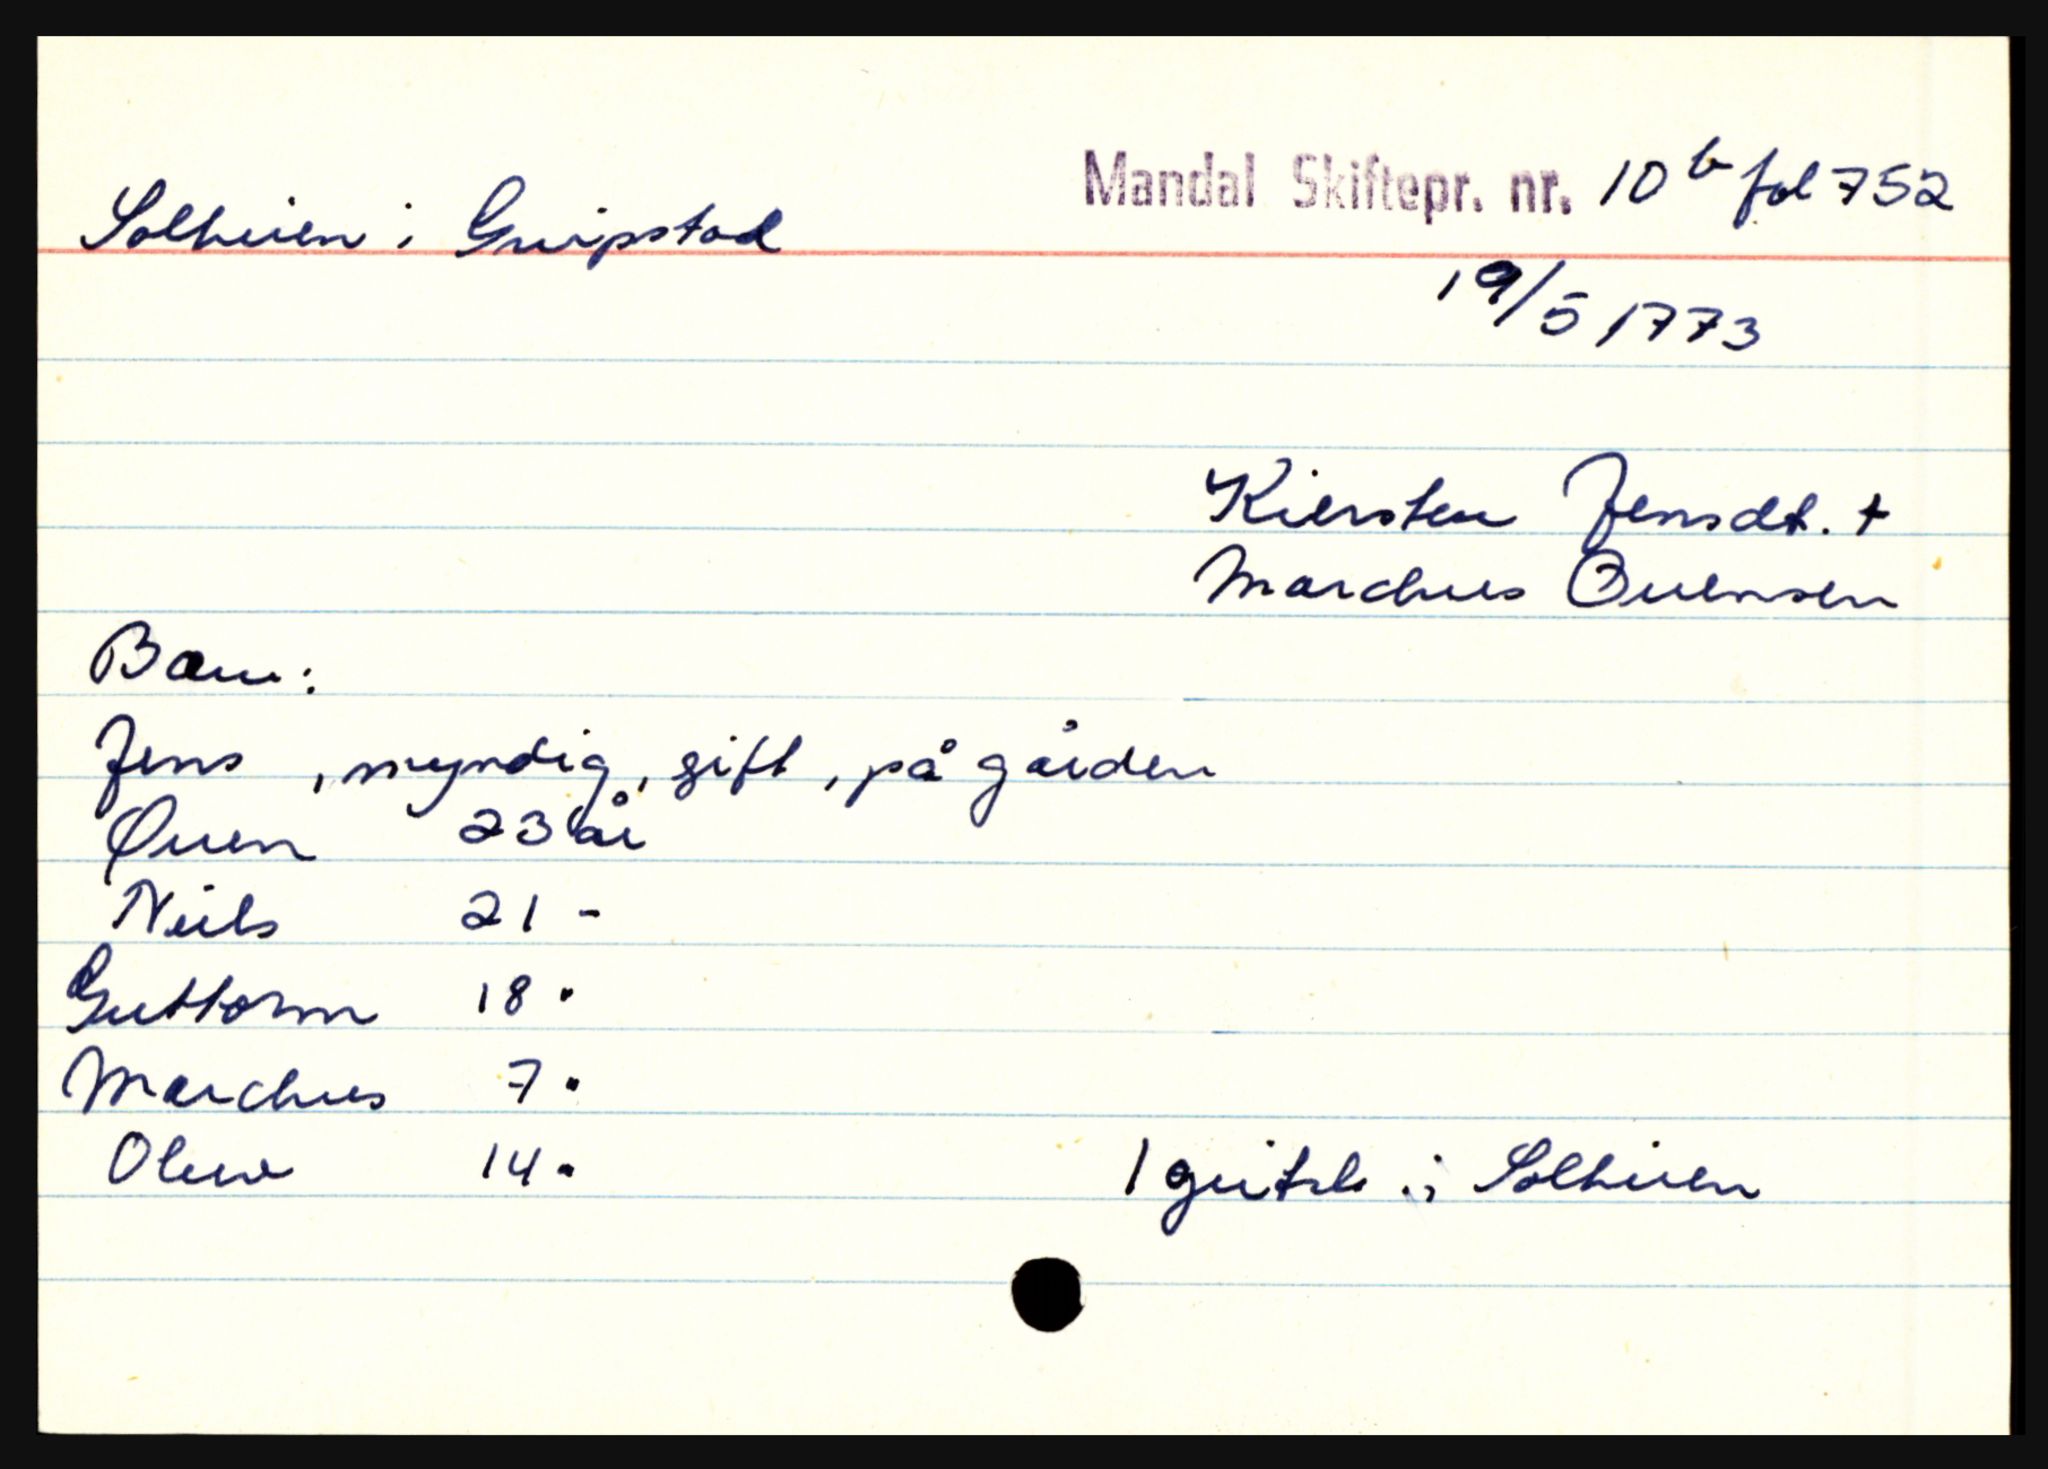 Mandal Skiftepr. nr. 10 b fol 752
Solheien i Greipstad
19/5 1773
Kiersten Jensdt. +
Marchus Øuensen
Barn:
Jens , myndig, gift, på gården
Øuen 23 år
Neils 21 -
Guttorm 18 "
Marchus 7 "
Oleus 14 "
1 i Solheien